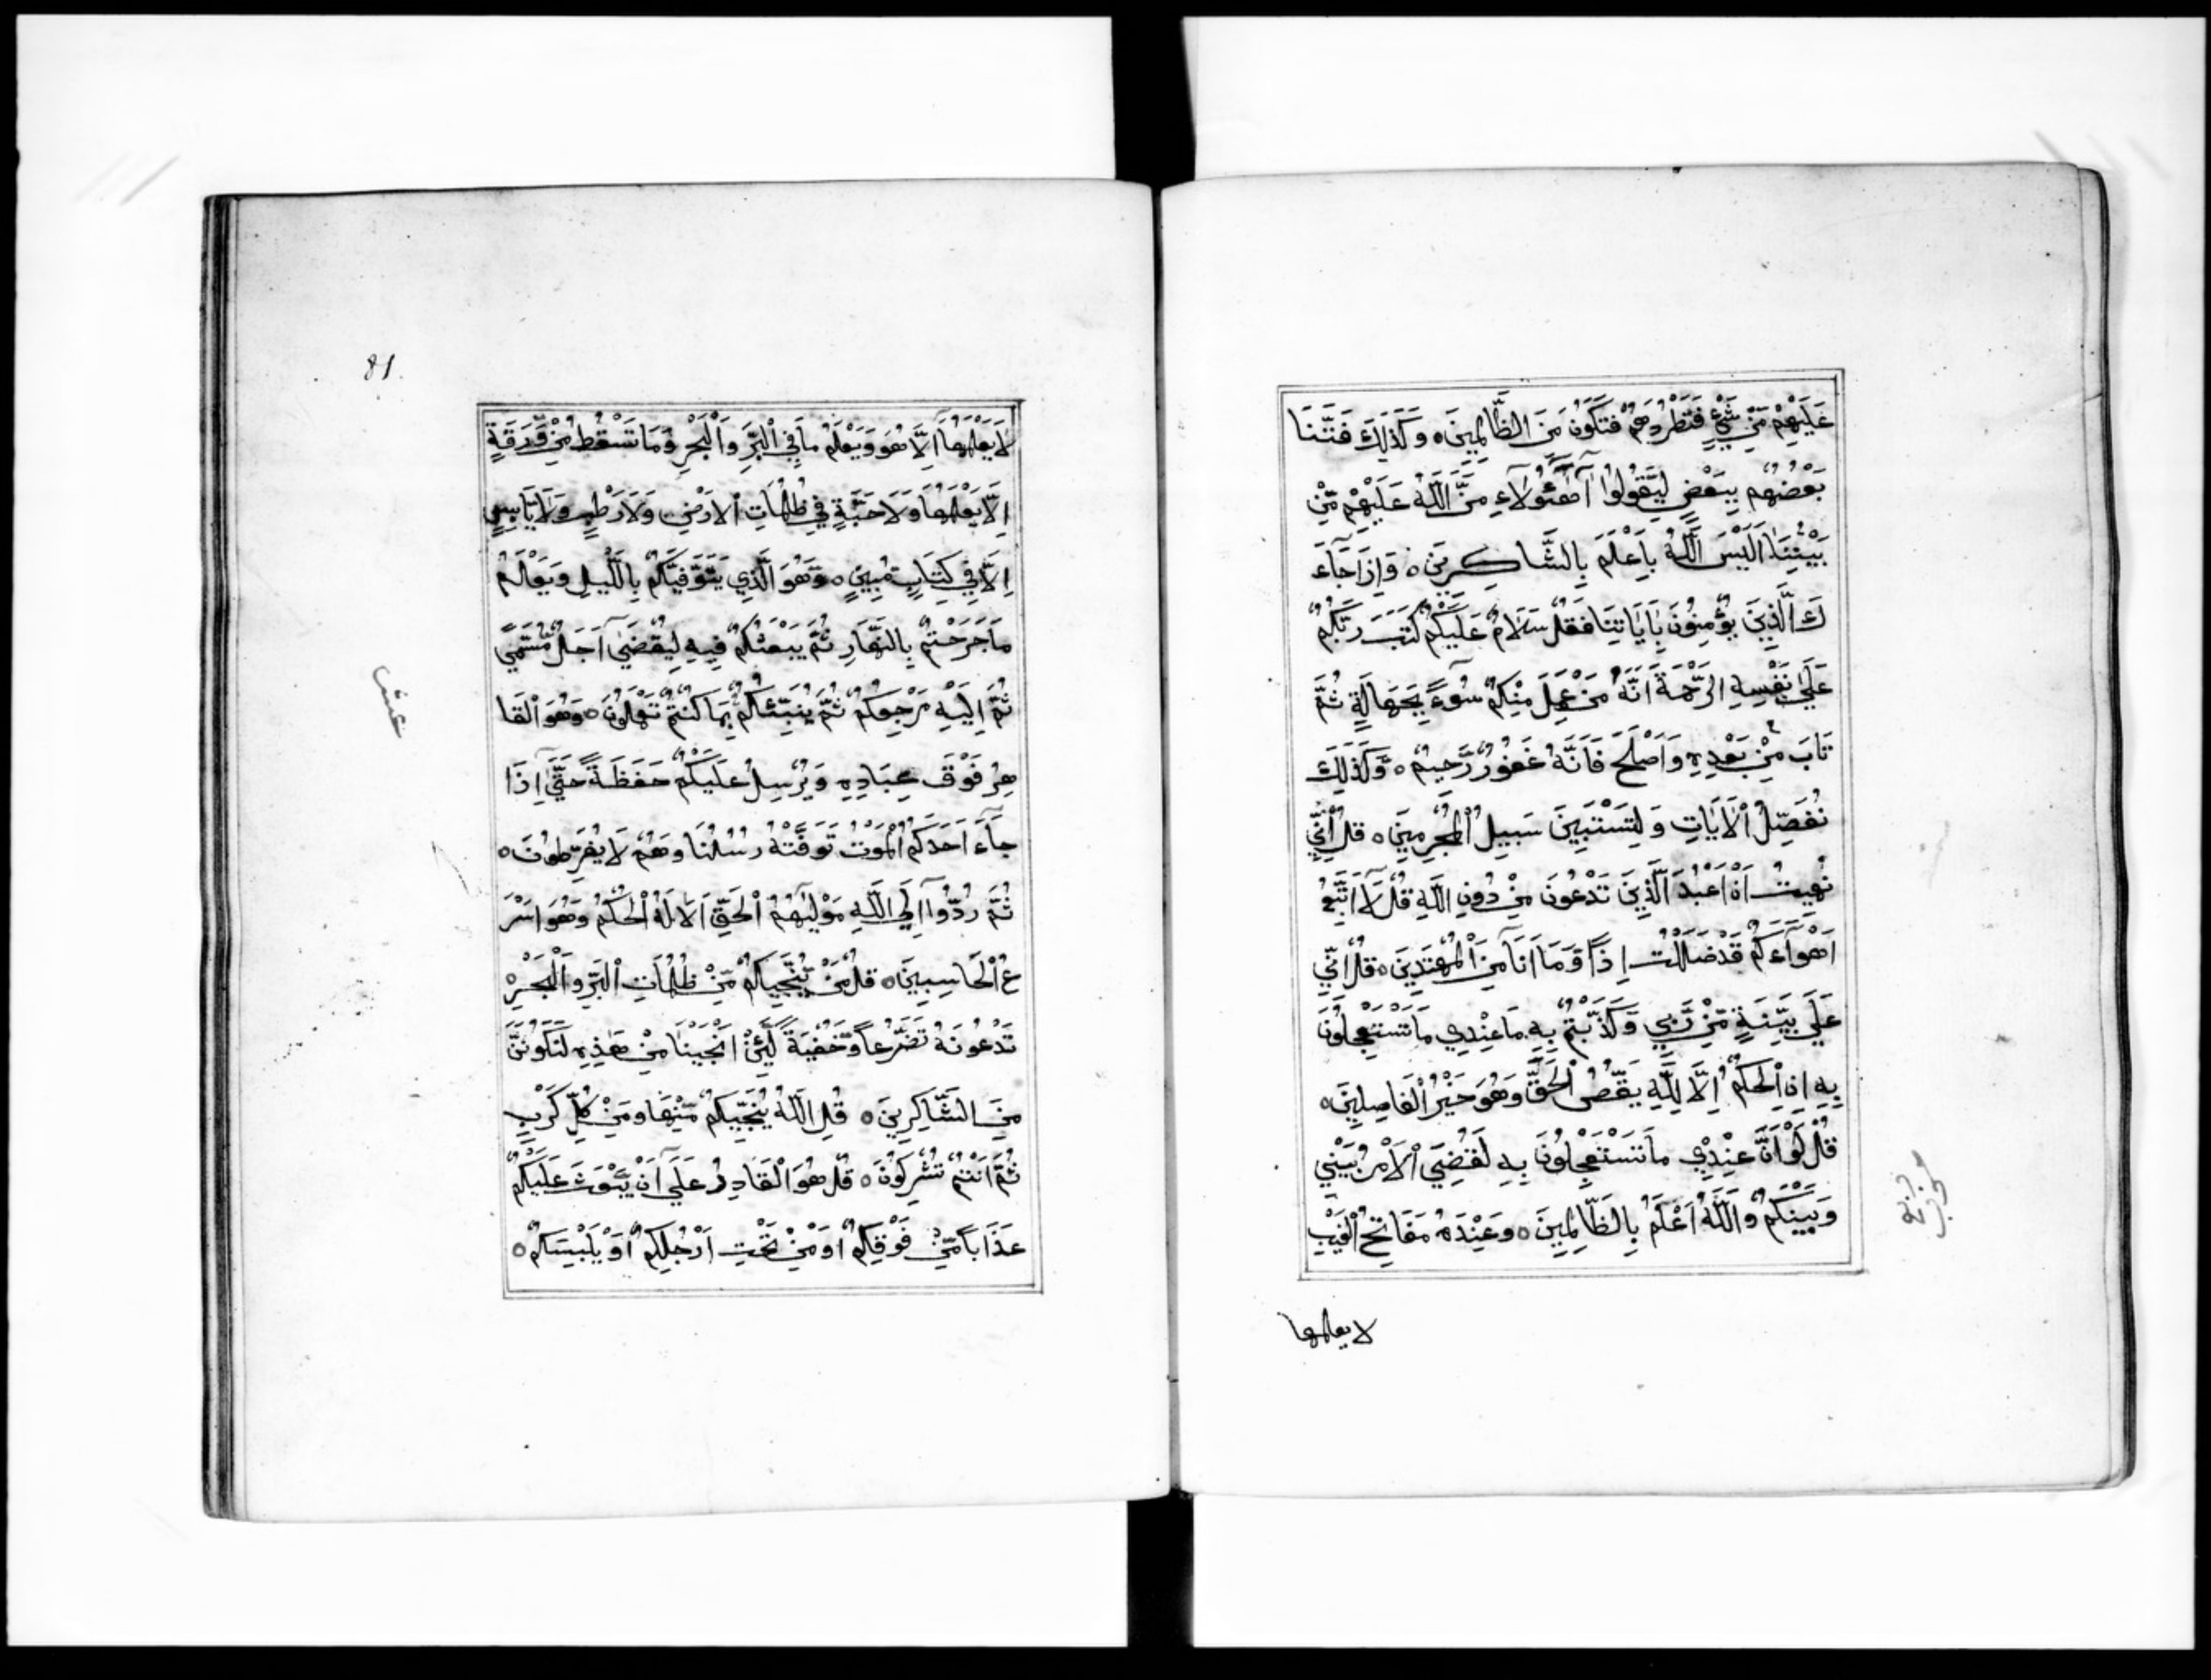 عَلَيْهِمْ مِّنْ شَيْءٍ فَتَطْرُدَهُمْ فَتَكُونَ مِنَ الظَّالِمِينَ ٥ وَكَذَلِكَ فَتَنَّا
بَعْضَهُم بِبَعْضٍ لِّيَقُولُوا أَهَٰٓؤُلَاءِ مَنَّ اللَّهُ عَلَيْهِم مِّنْ
بَيْنِنَا اَلَيْسَ اللَّهُ بِاَعْلَمَ بِالشَّاكِرِينَ ٥ وَإِذَا جَآءَ
كَ الَّذِينَ يُؤْمِنُونَ بِاٰيَاتِنَا فَقُلْ سَلَامٌ عَلَيْكُمْ كَتَبَ رَبُّكُمْ
عَلَىٰ نَفْسِهِ الرَّحْمَةَ اَنَّهُ مَنْ عَمِلَ مِنْكُمْ سُوءً بِجَهَالَةٍ ثُمَّ
تَابَ مِنْ بَعْدِهِ وَاَصْلَحَ فَاَنَّهُ غَفُورٌ رَّحِيمٌ ٥ وَكَذَلِكَ
نُفَصِّلُ الْاَيَاتِ وَلِتَسْتَبِينَ سَبِيلُ الْمُجْرِمِينَ ٥ قُلْ اِنِّي
نُهِيتُ اَنْ اَعْبُدَ الَّذِينَ تَدْعُونَ مِنْ دُونِ اللَّهِ قُلْ لَّا اَتَّبِعُ
اَهْوَآءَكُمْ قَدْ ضَلَلْتُ اِذًا وَّمَا اَنَا مِنَ الْمُهْتَدِينَ ٥ قُلْ اِنِّي
عَلَىٰ بَيِّنَةٍ مِّنْ رَّبِّي وَكَذَّبْتُمْ بِهِ مَا عِنْدِي مَا تَسْتَعْجِلُونَ
بِهِ اِنِ الْحُكْمُ اِلَّا لِلَّهِ يَقُصُّ الْحَقَّ وَهُوَ خَيْرُ الْفَاصِلِينَ ٥
قُلْ لَّوْ اَنَّ عِنْدِي مَا تَسْتَعْجِلُونَ بِهِ لَقُضِيَ الْاَمْرُ بَيْنِي
وَبَيْنَكُمْ وَاللَّهُ اَعْلَمُ بِالظَّالِمِينَ ٥ وَعِنْدَهُ مَفَاتِحُ الْغَيْبِ
لا يعلمها
81
لَا يَعْلَمُهَا اِلَّا هُوَ وَيَعْلَمُ مَا فِي الْبَرِّ وَالْبَحْرِ وَمَا تَسْقُطُ مِنْ وَّرَقَةٍ
اِلَّا يَعْلَمُهَا وَلَا حَبَّةٍ فِي ظُلُمَاتِ الْاَرْضِ وَلَا رَطْبٍ وَّلَا يَابِسٍ
اِلَّا فِي كِتَابٍ مُّبِينٍ ٥ وَهُوَ الَّذِي يَتَوَفَّيٰكُمْ بِاللَّيْلِ وَيَعْلَمُ
مَا جَرَحْتُمْ بِالنَّهَارِ ثُمَّ يَبْعَثُكُمْ فِيهِ لِيُقْضَىٰ اَجَلٌ مُّسَمًّي
ثُمَّ اِلَيْهِ مَرْجِعُكُمْ ثُمَّ يُنَبِّئُكُمْ بِمَا كُنْتُمْ تَعْمَلُونَ ٥ وَهُوَ الْقَا
هِرُ فَوْقَ عِبَادِهِ وَيُرْسِلُ عَلَيْكُمْ حَفَظَةً حَتَّىٰ اِذَا
جَآءَ اَحَدَكُمُ الْمَوْتُ تَوَفَّتْهُ رُسُلُنَا وَهُمْ لَا يُفَرِّطُونَ ٥
ثُمَّ رُدُّوا اِلَى اللَّهِ مَوْلَيٰهُمُ الْحَقِّ اَلَا لَهُ الْحُكْمُ وَهُوَ اَسْرَ
عُ الْحَاسِبِينَ ٥ قُلْ مَنْ يُّنَجِّيكُمْ مِّنْ ظُلُمَاتِ الْبَرِّ وَالْبَحْرِ
تَدْعُونَهُ تَضَرُّعًا وَّخُفْيَةً لَّئِنْ اَنْجَيْنَا مِنْ هٰذِهِ لَنَكُونَنَّ
مِنَ الشَّاكِرِينَ ٥ قُلِ اللَّهُ يُنَجِّيكُمْ مِّنْهَا وَمِنْ كُلِّ كَرْبٍ
ثُمَّ اَنْتُمْ تُشْرِكُونَ ٥ قُلْ هُوَ الْقَادِرُ عَلَىٰ اَنْ يَّبْعَثَ عَلَيْكُمْ
عَذَابًا مِّنْ فَوْقِكُمْ اَوْ مِنْ تَحْتِ اَرْجُلِكُمْ اَوْ يَلْبِسَكُمْ ٥
عشر